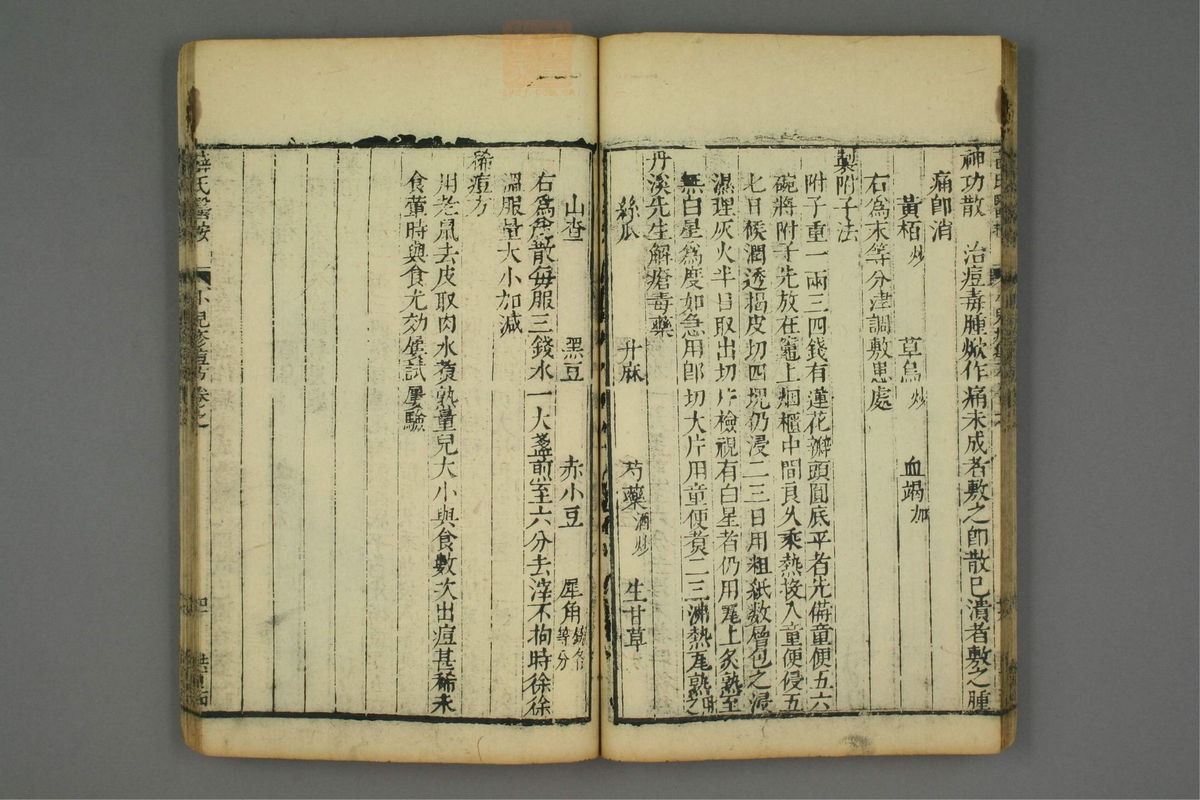 神功散　治痘毒腫焮作痛未成者敷之卽散已潰者敷之腫
痛卽消
黃栢炒　草烏炒　血竭加
右為末等分津調敷患處
製附子法
附子重一兩三四錢有蓮花瓣頭圓底平者先備童便五六
碗將附子先放在竈上烟櫃中間良久乘熱投入童便侵五
七日候潤透揭皮切四塊仍浸二三日用粗紙數層包之浸
濕埋灰火半日取出切片檢視有白星者仍用瓦上炙熟至
無白星爲度如急用卽切大片用童便煑二三沸熱瓦熟用之
丹溪先生解瘡毒藥
絲瓜　升麻　芍藥酒炒　生甘草
山查　黑豆　赤小豆　犀角鎊各等分
右爲麄散每服三錢水一大盞煎至六分去滓不拘時徐徐
溫服量大小加減
稀痘方
用老鼠去皮取肉水煑熟量兒大小與食數次出痘甚稀未
食葷時與食尤効屢試屢驗
薛氏醫按　小兒疹痘方卷之